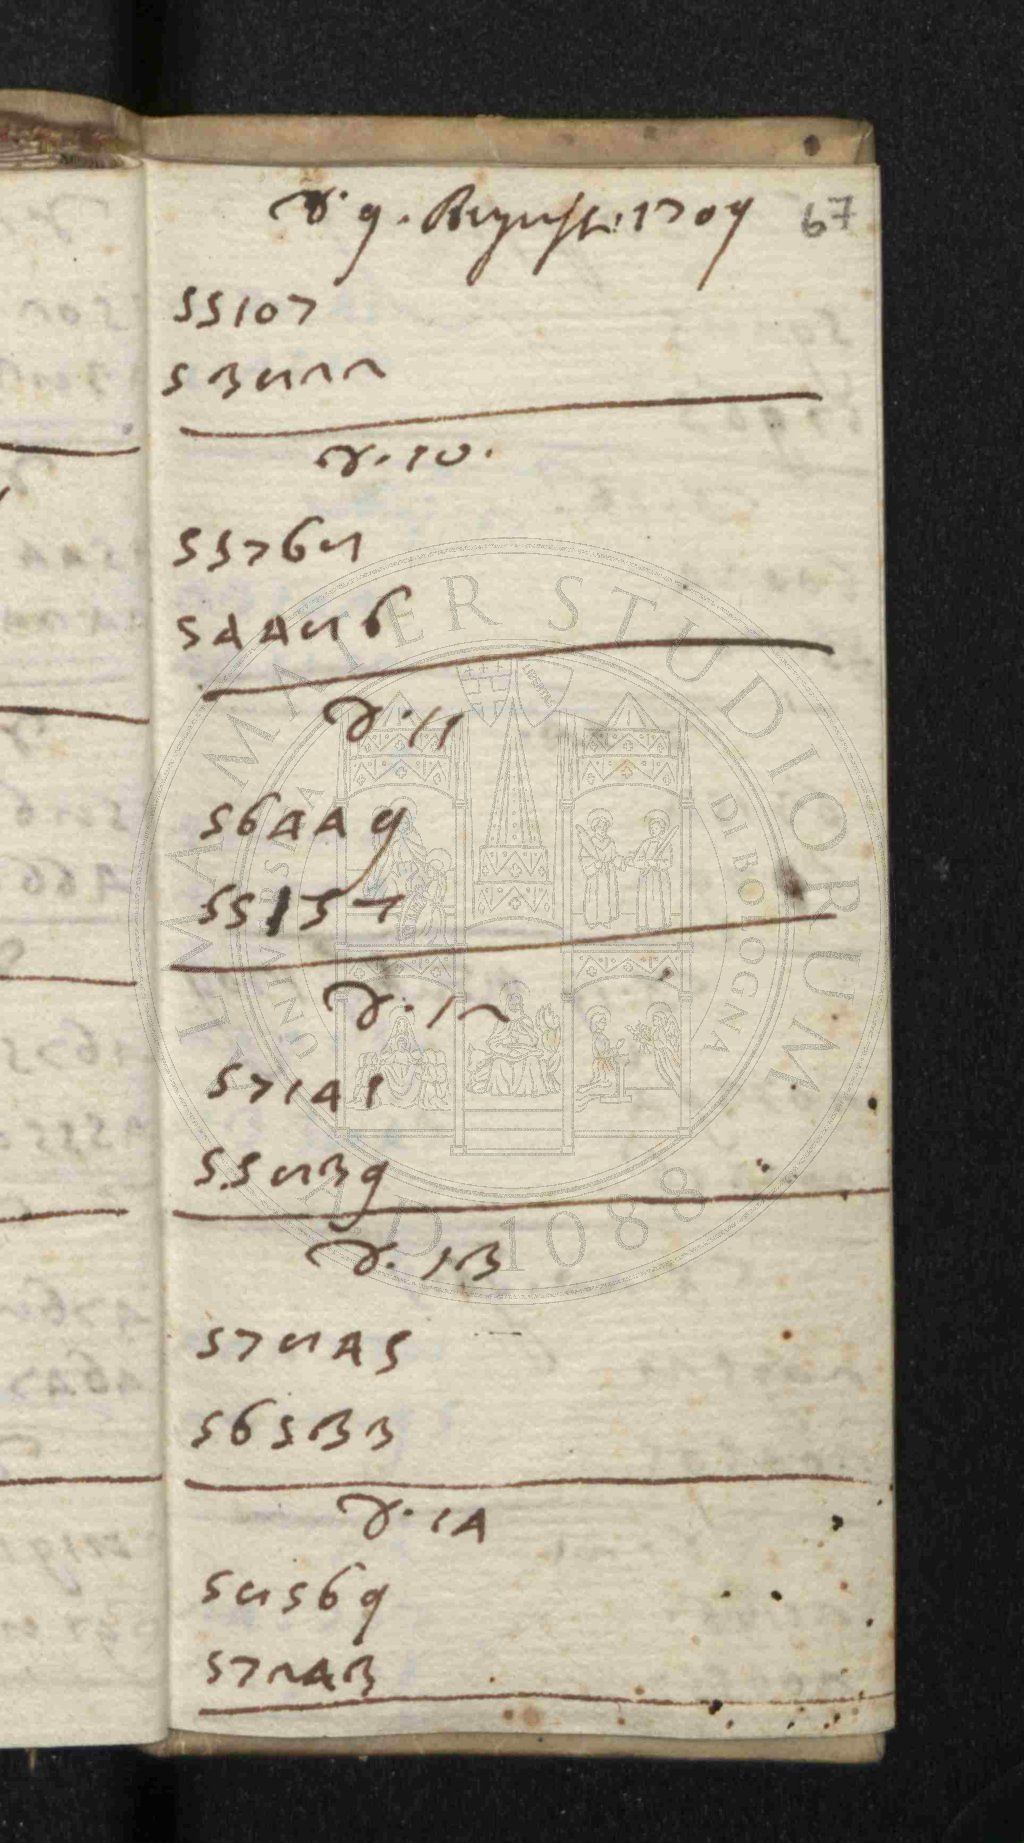 d. 9. August: 1709
67
55107
53822
d. 10.
55768
54486
d. 11
56449
55137
d. 12
57141
55839
d. 13
57845
56533
d. 14
58569
57243
ALMA MATER STUDIORUM
UNIVERSITÀ DI BOLOGNA
A.D. 1088